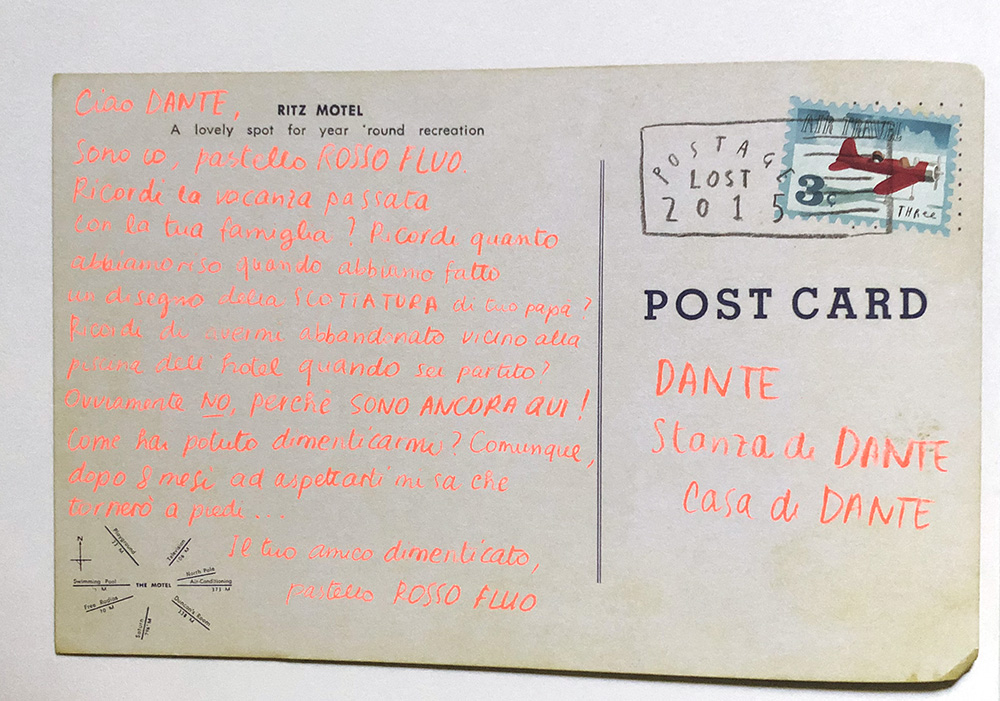 Ciao DANTE,
RITZ MOTEL
A lovely spot for year 'round recreation
Sono io, pastello ROSSO FLUO.
Ricordi la vacanza passata
con la tua famiglia? Ricordi quanto
abbiamo riso quando abbiamo fatto
un disegno della SCOTTATURA di tuo papà?
Ricordi di avermi abbandonato vicino alla
piscina dell'hotel quando sei partito?
Ovviamente NO, perché SONO ANCORA QUI!
Come hai potuto dimenticarmi? Comunque,
dopo 8 mesi ad aspettarti mi sa che
tornerò a piedi...
Il tuo amico dimenticato,
pastello ROSSO FLUO
N
Playground
Television
North Pole
Swimming Pool
THE MOTEL
Air-Conditioning
Free Radios
Duncan's Room
Saturn
POSTAGE
LOST
2015
AIR TRAVEL
3¢
THREE
POST CARD
DANTE
Stanza di DANTE
Casa di DANTE